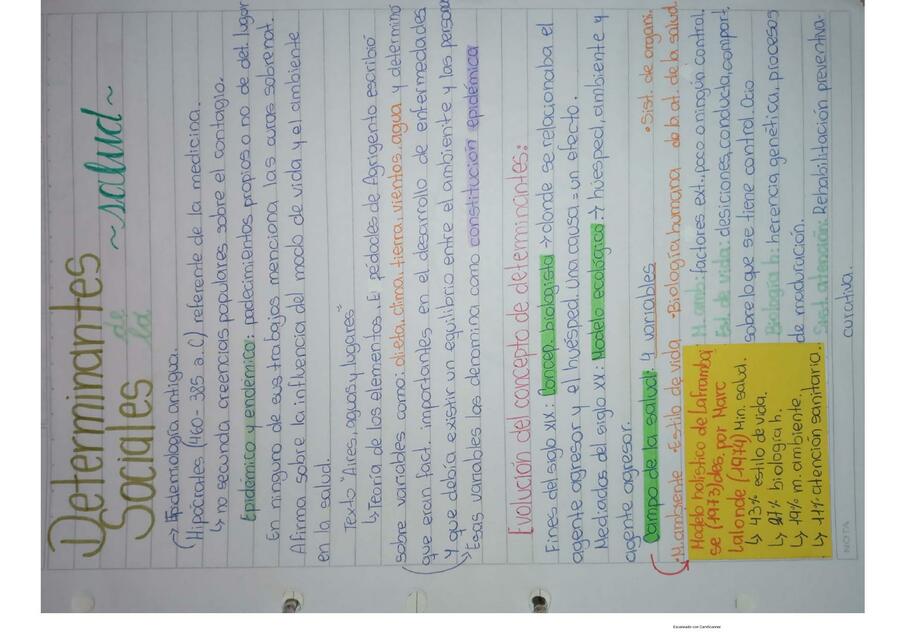 Determinantes
Sociales de la ~salud~
→ Epidemiología antigua.
Hipócrates (460-385 a.C) referente de la medicina.
↳ no secunda creencias populares sobre el contagio.
Epidémico y endémico: padecimientos propios o no de det. lugar
En ninguno de sus trabajos menciona las auras sobrenat.
Afirma sobre la influencia del modo de vida y el ambiente
en la salud.
Texto "Aires, aguas y lugares"
↳ Teoría de los elementos. E pédades de Agrigento escribió
sobre variables como: dieta, clima, tierra, vientos, agua y determinó
que eran fact. importantes en el desarrollo de enfermedades
Y que debía existir un equilibrio entre el ambiente y las persona
→ Esas variables las denomina como constitución epidémica
Evolución del concepto de determinantes:
Fines del siglo XIX: Concep. biologista → donde se relacionaba el
agente agresor y el huésped. Una causa = un efecto.
Mediados del siglo XX: Modelo ecológico: → huésped, ambiente y
agente agresor.
Campo de la salud: 4 variables
• M. ambiente • Estilo de vida • Biología humana • Sist. de organi.
de la at. de la salud.
Modelo holístico de Laframboi
se (1973) des. por Marc
Lalonde (1974) Min. salud.
↳ 43% estilo de vida.
↳ 27% biología h.
↳ 19% m. ambiente.
↳ 11% atención sanitaria.
M. amb: factores ext., poco o ningún control.
Est. de vida: desiciones, conducta, comport.
sobre lo que se tiene control. Ocio
Biología h: herencia genética, procesos
de maduración.
Sist. atención: Rehabilitación preventiva-
curativa.
NOTA
Escaneado con CamScanner